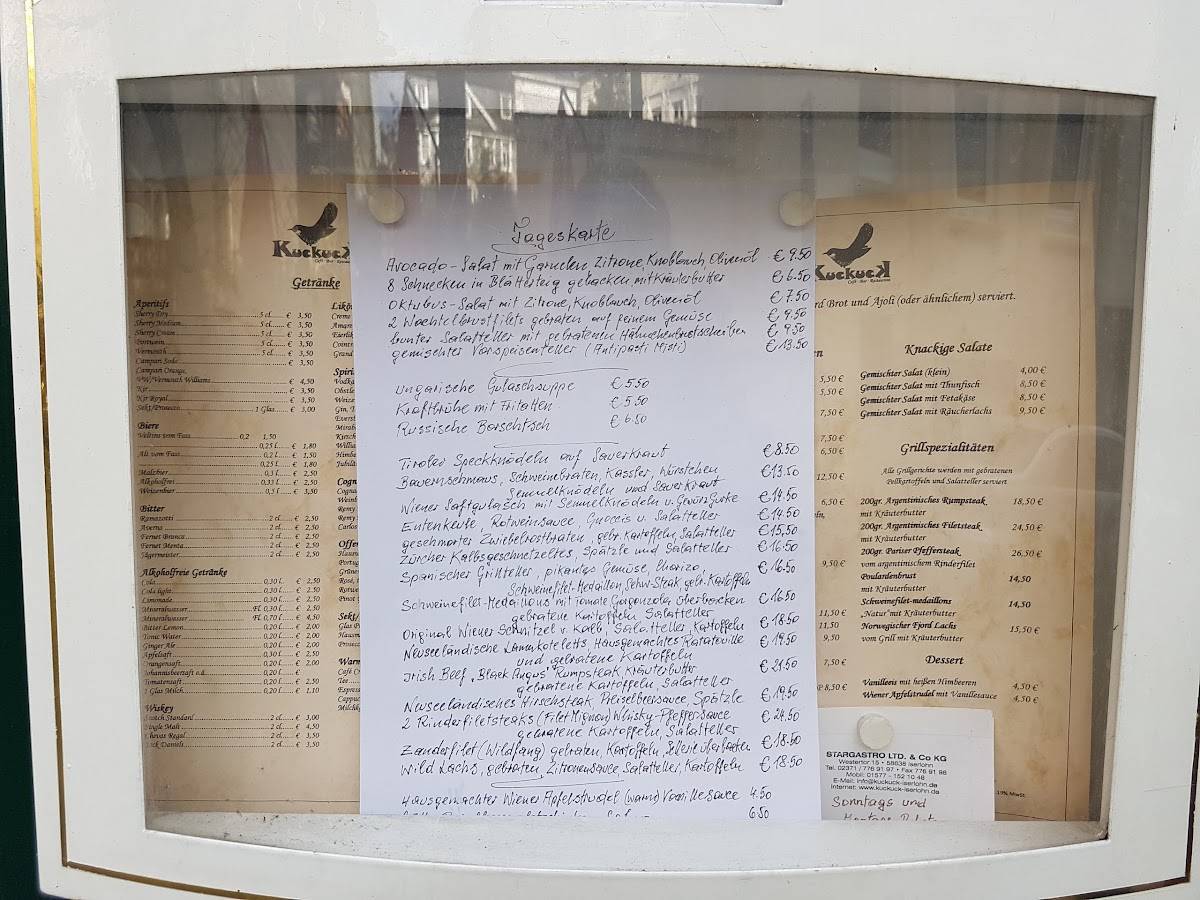 KuckucK
Getränke
Aperitifs
Sherry Dry 5 cl. € 3,50
Sherry Medium 5 cl. € 3,50
Sherry Cream 5 cl. € 3,50
Portwein 5 cl. € 3,50
Vermouth 5 cl. € 3,50
Campari Soda € 3,50
Campari Orange,
Vermouth Williams € 4,50
Kir € 3,50
Kir Royal € 3,50
Sekt/Prosecco 1 Glas € 3,00
Biere
Veltins vom Fass 0,2 1,50
0,25 l. € 1,80
Alt vom Fass 0,2 l. € 1,50
0,25 l. € 1,80
Malzbier 0,5 l. € 2,50
Alkoholfrei 0,33 l. € 2,50
Weizenbier 0,5 l. € 3,50
Bitter
Ramazotti 2 cl. € 2,50
Averna 2 cl. € 2,50
Fernet Branca 2 cl. € 2,50
Fernet Menta 2 cl. € 2,50
Jägermeister 2 cl. € 2,50
Alkoholfreie Getränke
Cola 0,30 l. € 2,50
Cola light 0,30 l. € 2,50
Limonade 0,30 l. € 2,50
Mineralwasser Fl. 0,30 l. € 2,50
Mineralwasser Fl. 0,70 l. € 4,50
Bitter Lemon 0,20 l. € 2,00
Tonic Water 0,20 l. € 2,00
Ginger Ale 0,20 l. € 2,00
Apfelsaft 0,30 l. € 2,50
Orangensaft 0,20 l. € 2,00
Johannisbeersaft o.ä.
Tomatensaft 0,20 l. € 2,50
1 Glas Milch 0,20 l. € 1,10
Wiskey
Scotch Standard 2 cl. € 3,00
Single Malt 2 cl. € 4,50
Chevas Regal 2 cl. € 3,50
Jack Daniels 2 cl. € 3,50
Tageskarte
Avocado-Salat mit Garnelen Zitrone, Knoblauch, Olivenöl € 9.50
8 Schnecken in Blätterteig gebacken, mit Kräuterbutter € 6.50
Oktubus-Salat mit Zitrone, Knoblauch, Olivenöl € 7.50
2 Wachtelbrustfilets gebraten auf feinem Gemüse € 9.50
bunter Salatteller mit gebratenen Hähnchenbrustscheiben € 9.50
gemischter Vorspeisenteller (Antipasti Misti) € 13.50
ungarische Gulaschsuppe € 5.50
Kraftbrühe mit Fritatten € 5.50
Russische Borschtsch € 6.50
Tiroler Speckknödeln auf Sauerkraut € 8.50
Bauernschmaus, Schweinbraten, Kassler, Würstchen € 13.50
Semmelknödeln und Sauerkraut
Wiener Saftgulasch mit Semmelknödeln u. Gewürzgurke € 14.50
Entenkeule, Rotweinsauce, Gnoccis u. Salatteller € 14.50
geschmorter Zwiebelrostbraten, gebr. Kartoffeln, Salatteller € 15.50
Zürcher Kalbsgeschnetzeltes, Spätzle und Salatteller € 16.50
Spanischer Grillteller, pikantes Gemüse, Chorizo, € 16.50
Schweinefilet-Medaillon, Schw-Steak, gebr. Kartoffeln
Schweinefilet-Medaillons mit Tomate Gorgonzola überbacken € 16.50
gebratene Kartoffeln, Salatteller
Original Wiener Schnitzel v. Kalb, Salatteller, Kartoffeln € 18.50
Neuseeländische Lammkoteletts, Hausgemachtes Ratatuille € 19.50
und gebratene Kartoffeln
Irish Beef, "Black Angus" Rumpsteak, Kräuterbutter € 21.50
gebratene Kartoffeln, Salatteller
Neuseeländisches Hirschsteak, Preiselbeersauce, Spätzle € 19.50
2 Rinderfiletsteaks (Filet Mignon) Whisky-Pfeffersauce € 24.50
gebratene Kartoffeln, Salatteller
Zanderfilet (Wildfang) gebraten, Kartoffeln, Sellerie überbacken € 18.50
Wild Lachs, gebraten, Zitronensauce, Salatteller, Kartoffeln € 18.50
Hausgemachter Wiener Apfelstrudel (warm) Vanillesauce 4.50
6.50
KuckucK
Café Bar Restaurant
Brot und Ajoli (oder ähnlichem) serviert.
5,50 €
5,50 €
7,50 €
7,50 €
6,50 €
12,50 €
6,50 €
9,50 €
11,50 €
11,50
9,50
7,50 €
8,50 €
Knackige Salate
Gemischter Salat (klein) 4,00 €
Gemischter Salat mit Thunfisch 8,50 €
Gemischter Salat mit Fetakäse 8,50 €
Gemischter Salat mit Räucherlachs 9,50 €
Grillspezialitäten
Alle Grillgerichte werden mit gebratenen
Pellkartoffeln und Salatteller serviert
200gr. Argentinisches Rumpsteak 18,50 €
mit Kräuterbutter
200gr. Argentinisches Filetsteak 24,50 €
mit Kräuterbutter
200gr. Pariser Pfeffersteak 26,50 €
vom argentinischem Rinderfilet
Poulardenbrust 14,50
mit Kräuterbutter
Schweinefilet-medaillons 14,50
„Natur" mit Kräuterbutter
Norwegischer Fjord Lachs 15,50 €
vom Grill mit Kräuterbutter
Dessert
Vanilleeis mit heißen Himbeeren 4,50 €
Wiener Apfelstrudel mit Vanillesauce 4,50 €
STARGASTRO LTD. & Co KG
Westertor 15 • 58636 Iserlohn
Tel. 02371 / 776 91 97 • Fax 776 91 98
Mobil: 01577 - 152 10 48
E-Mail: info@kuckuck-iserlohn.de
Internet: www.kuckuck-iserlohn.de
Sonntags und
19% MwSt.